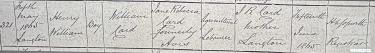 Fifth
May
1865
Langton
321
Henry
William
Boy
William
Card
Jane Rebecca
Card
formerly
Agricultural
Labourer
J R Card
Mother
Langton
Fifteenth
June
1865
Registrar